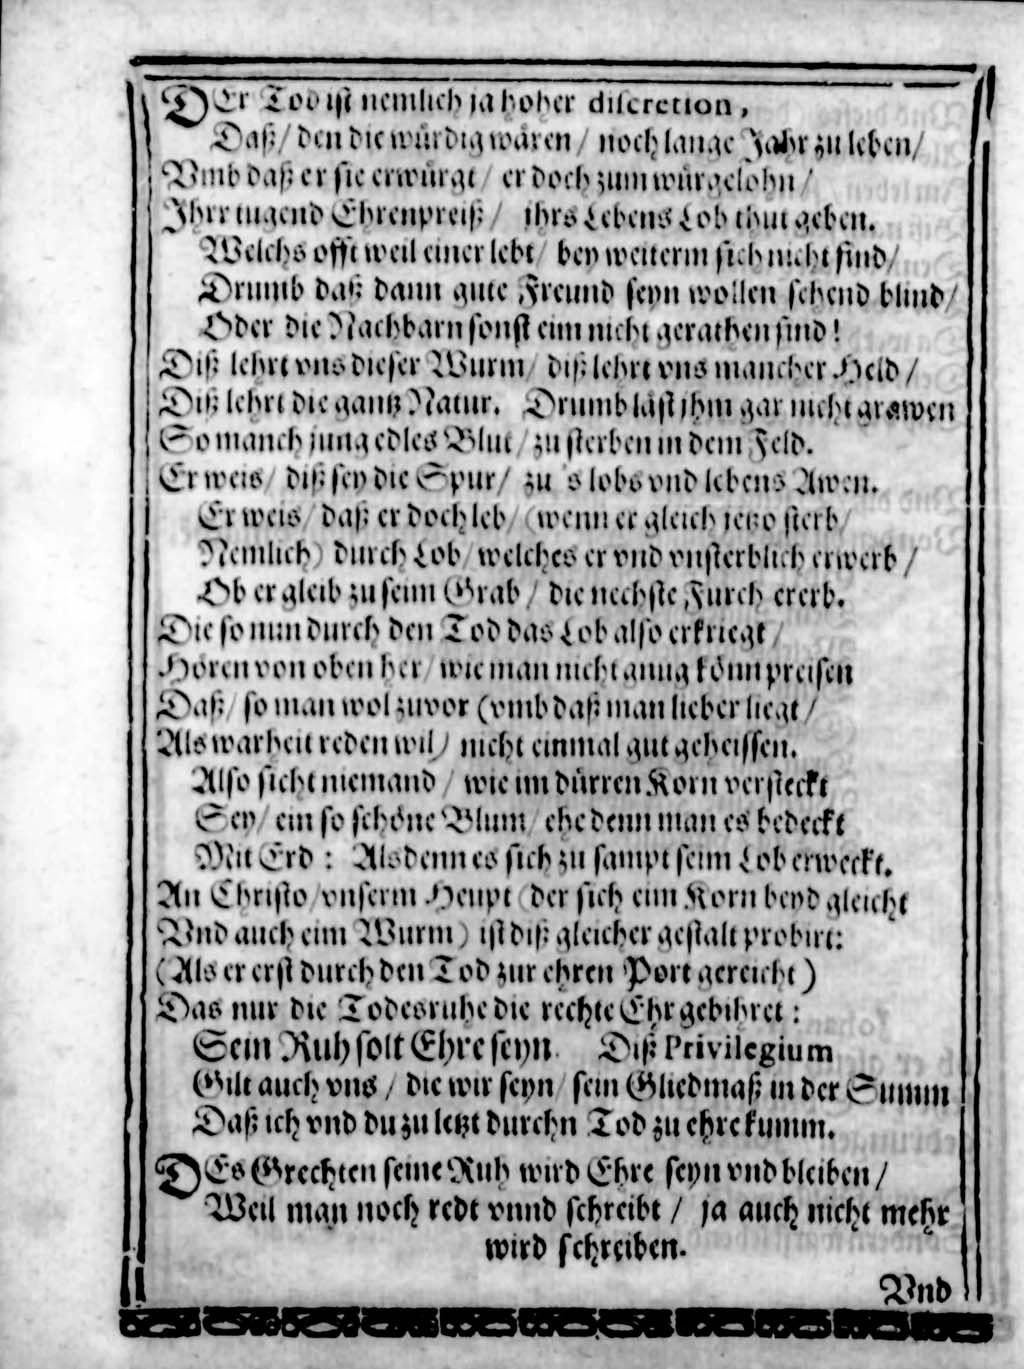 DEr Tod ist nemlich ja hoher discretion,
Daß/ den die wuͤrdig waͤren/ noch lange Jahr zu leben/
Vmb daß er sie erwuͤrgt/ er doch zum wuͤrgelohn/
Jhrr tugend Ehrenpreiß/ ihrs Lebens Lob thut geben.
Welchs offt weil einer lebt/ bey weiterm sich nicht find/
Drumb daß dann gute Freund seyn wollen sehend blind/
Oder die Nachbarn sonst eim nicht gerathen sind!
Diß lehrt vns dieser Wurm/ diß lehrt vns mancher Held/
Diß lehrt die gantz Natur. Drumb laͤst jhm gar nicht grawen
So manch jung edles Blut/ zu sterben in dem Feld.
Er weis/ diß sey die Spur/ zu 's lobs vnd lebens Awen.
Er weis/ daß er doch leb/ (wenn er gleich jetzo sterb/
Nemlich) durch Lob/ welches er vnd vnsterblich erwerb/
Ob er gleib zu seim Grab/ die nechste Furch ererb.
Die so nun durch den Tod das Lob also erkriegt/
Hoͤren von oben her/ wie man nicht gnug koͤnn preisen
Daß/ so man wol zuvor (vmb daß man lieber liegt/
Als warheit reden wil) nicht einmal gut geheissen.
Also sicht niemand/ wie im duͤrren Korn versteckt
Sey/ ein so schoͤne Blum/ ehe denn man es bedeckt
Mit Erd: Alsdenn es sich zu sampt seim Lob erweckt.
An Christo/ vnserm Heupt (der sich eim Korn beyd gleicht
Vnd auch eim Wurm) ist diß gleicher gestalt probirt:
(Als er erst durch den Tod zur ehren Port gereicht)
Das nur die Todesruhe die rechte Ehr gebihret:
Sein Ruh solt Ehre seyn. Diß Privilegium
Gilt auch vns/ die wir seyn/ sein Gliedmaß in der Summ
Daß ich vnd du zu letzt durchn Tod zu ehre kumm.
DEs Grechten seine Ruh wird Ehre seyn vnd bleiben/
Weil man noch redt vnnd schreibt/ ja auch nicht mehr
wird schreiben.
Vnd